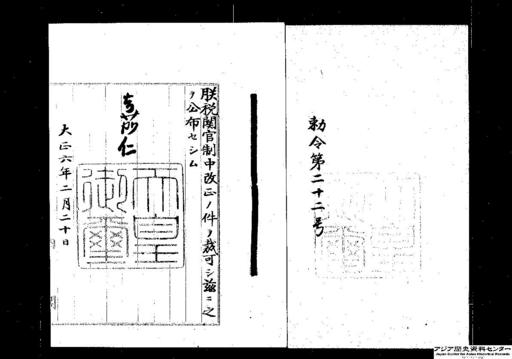 勅令第二十二号
朕税関官制中改正ノ件ヲ裁可シ茲ニ之
ヲ公布セシム
嘉仁
天皇
御璽
大正六年二月二十日
アジア歴史資料センター
Japan Center for Asian Historical Records